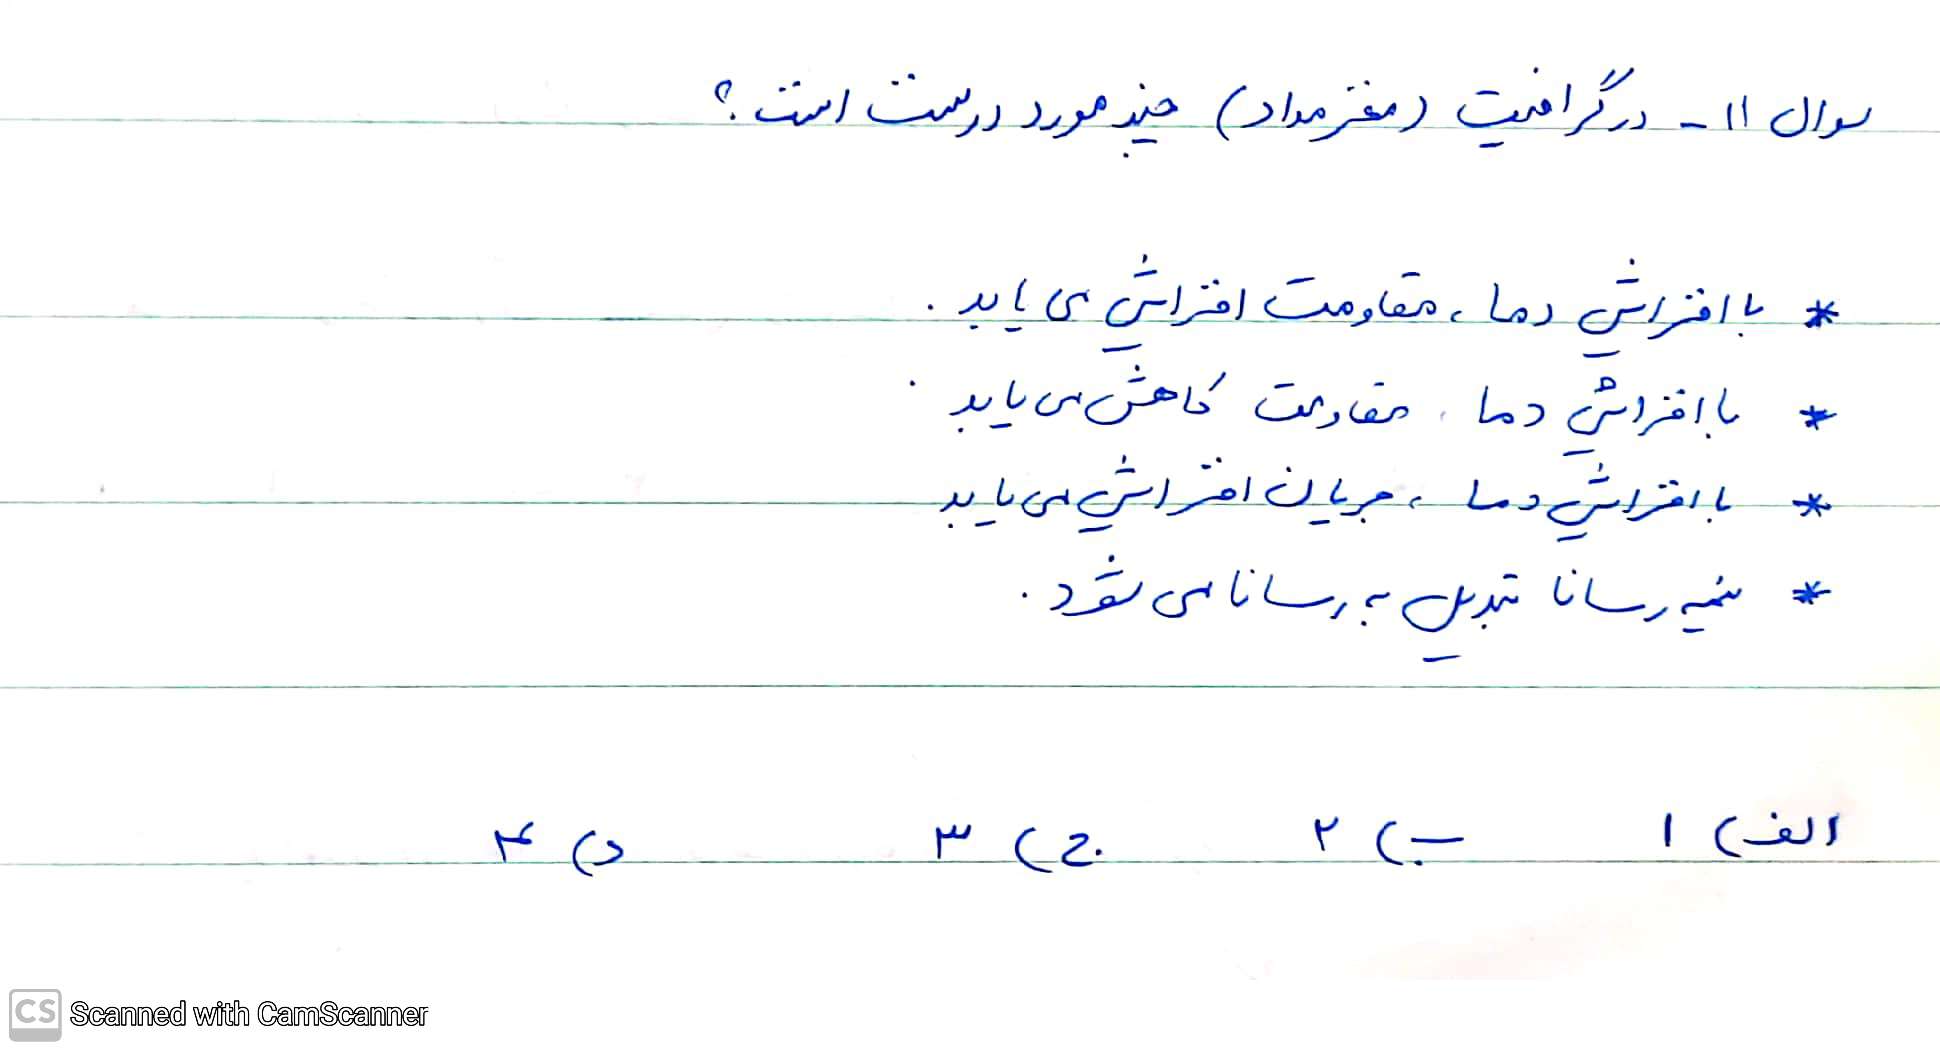 سوال ۱۱ - در گرافیت (مغز مداد) چند مورد درست است؟
* با افزایش دما، مقاومت افزایش می یابد.
* با افزایش دما، مقاومت کاهش می یابد.
* با افزایش دما، جریان افزایش می یابد
* نیمه رسانا تبدیل به رسانا می شود.
الف) ۱ ب) ۲ ج) ۳ د) ۴
CS Scanned with CamScanner